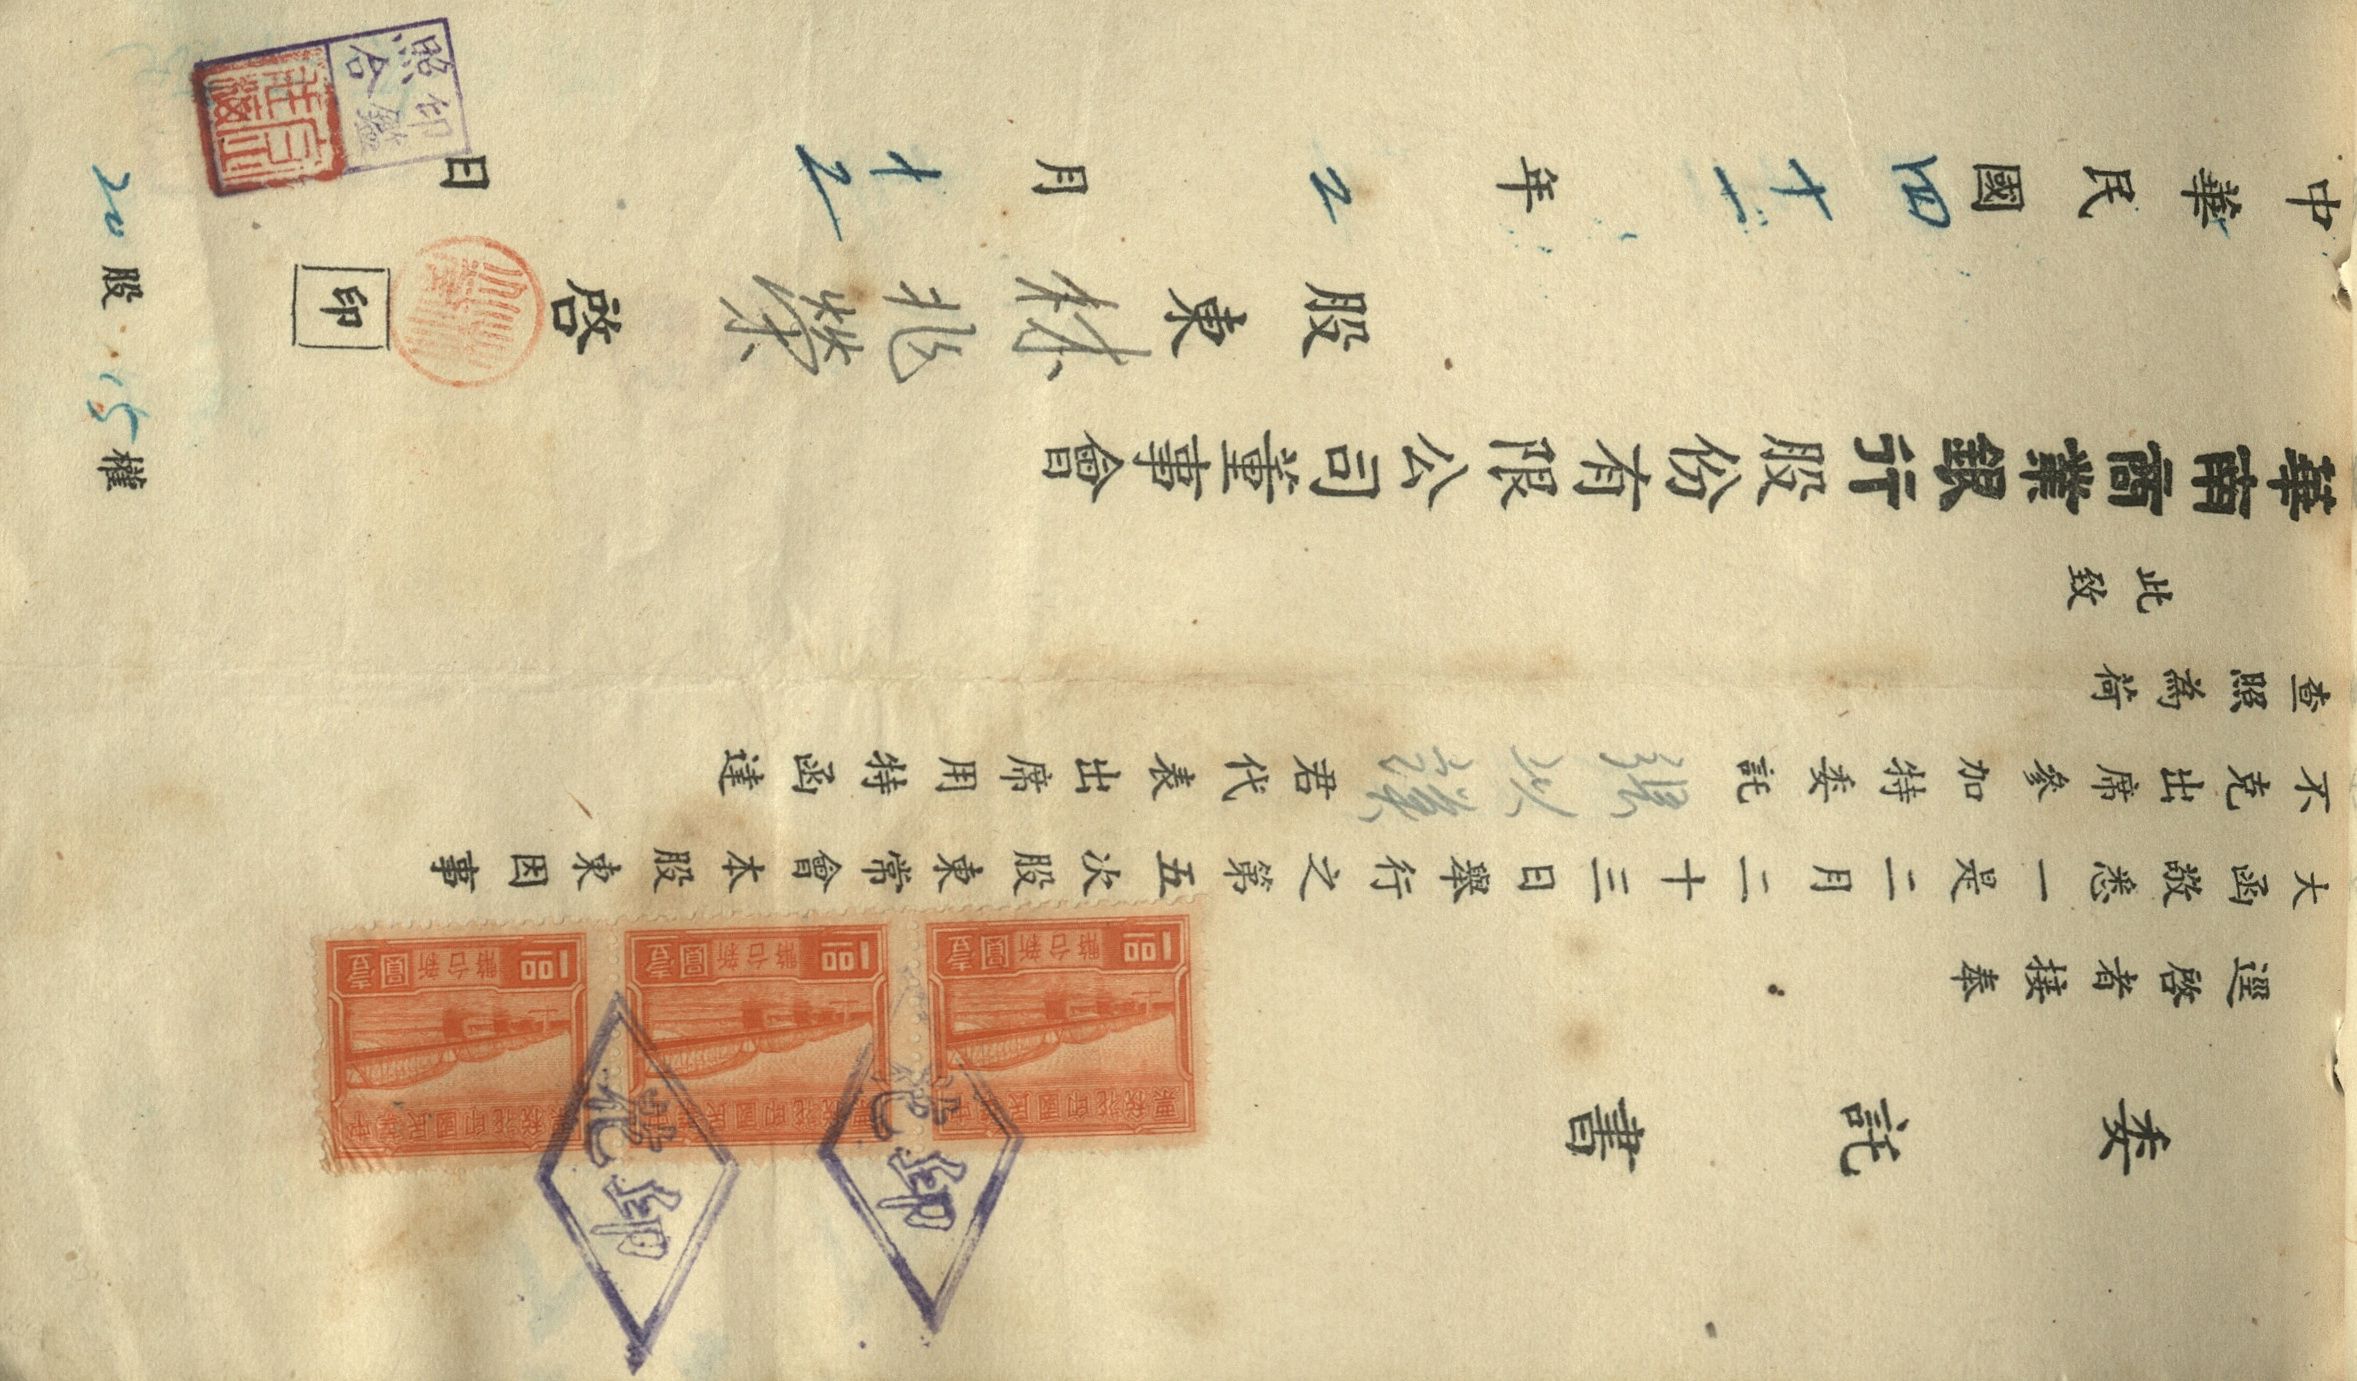 委託書
逕啓者接奉
大函敬悉一是二月二十三日舉行之第五次股東常會本股東因事
不克出席參加特委託 君代表出席用特函達
查照為荷
此致
華南商業銀行股份有限公司董事會
股東林兆榮啓
印
中華民國四十一年2月十2日
20股15權
印鑑
照合
中華民國印花稅票
新台幣壹圓
1.00
中華民國印花稅票
新台幣壹圓
1.00
中華民國印花稅票
新台幣壹圓
1.00
印花
印花